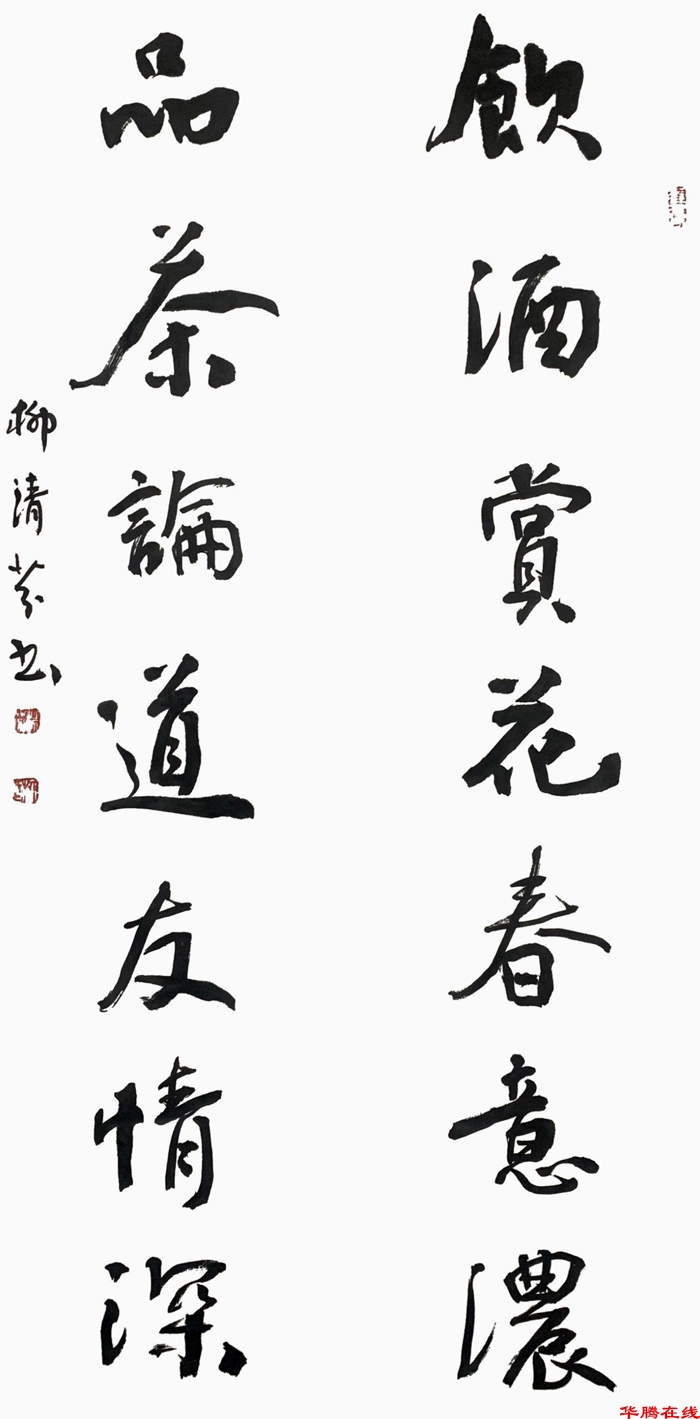 飲酒賞花春意濃
品茶論道友情深
柳清芬书
华腾在线